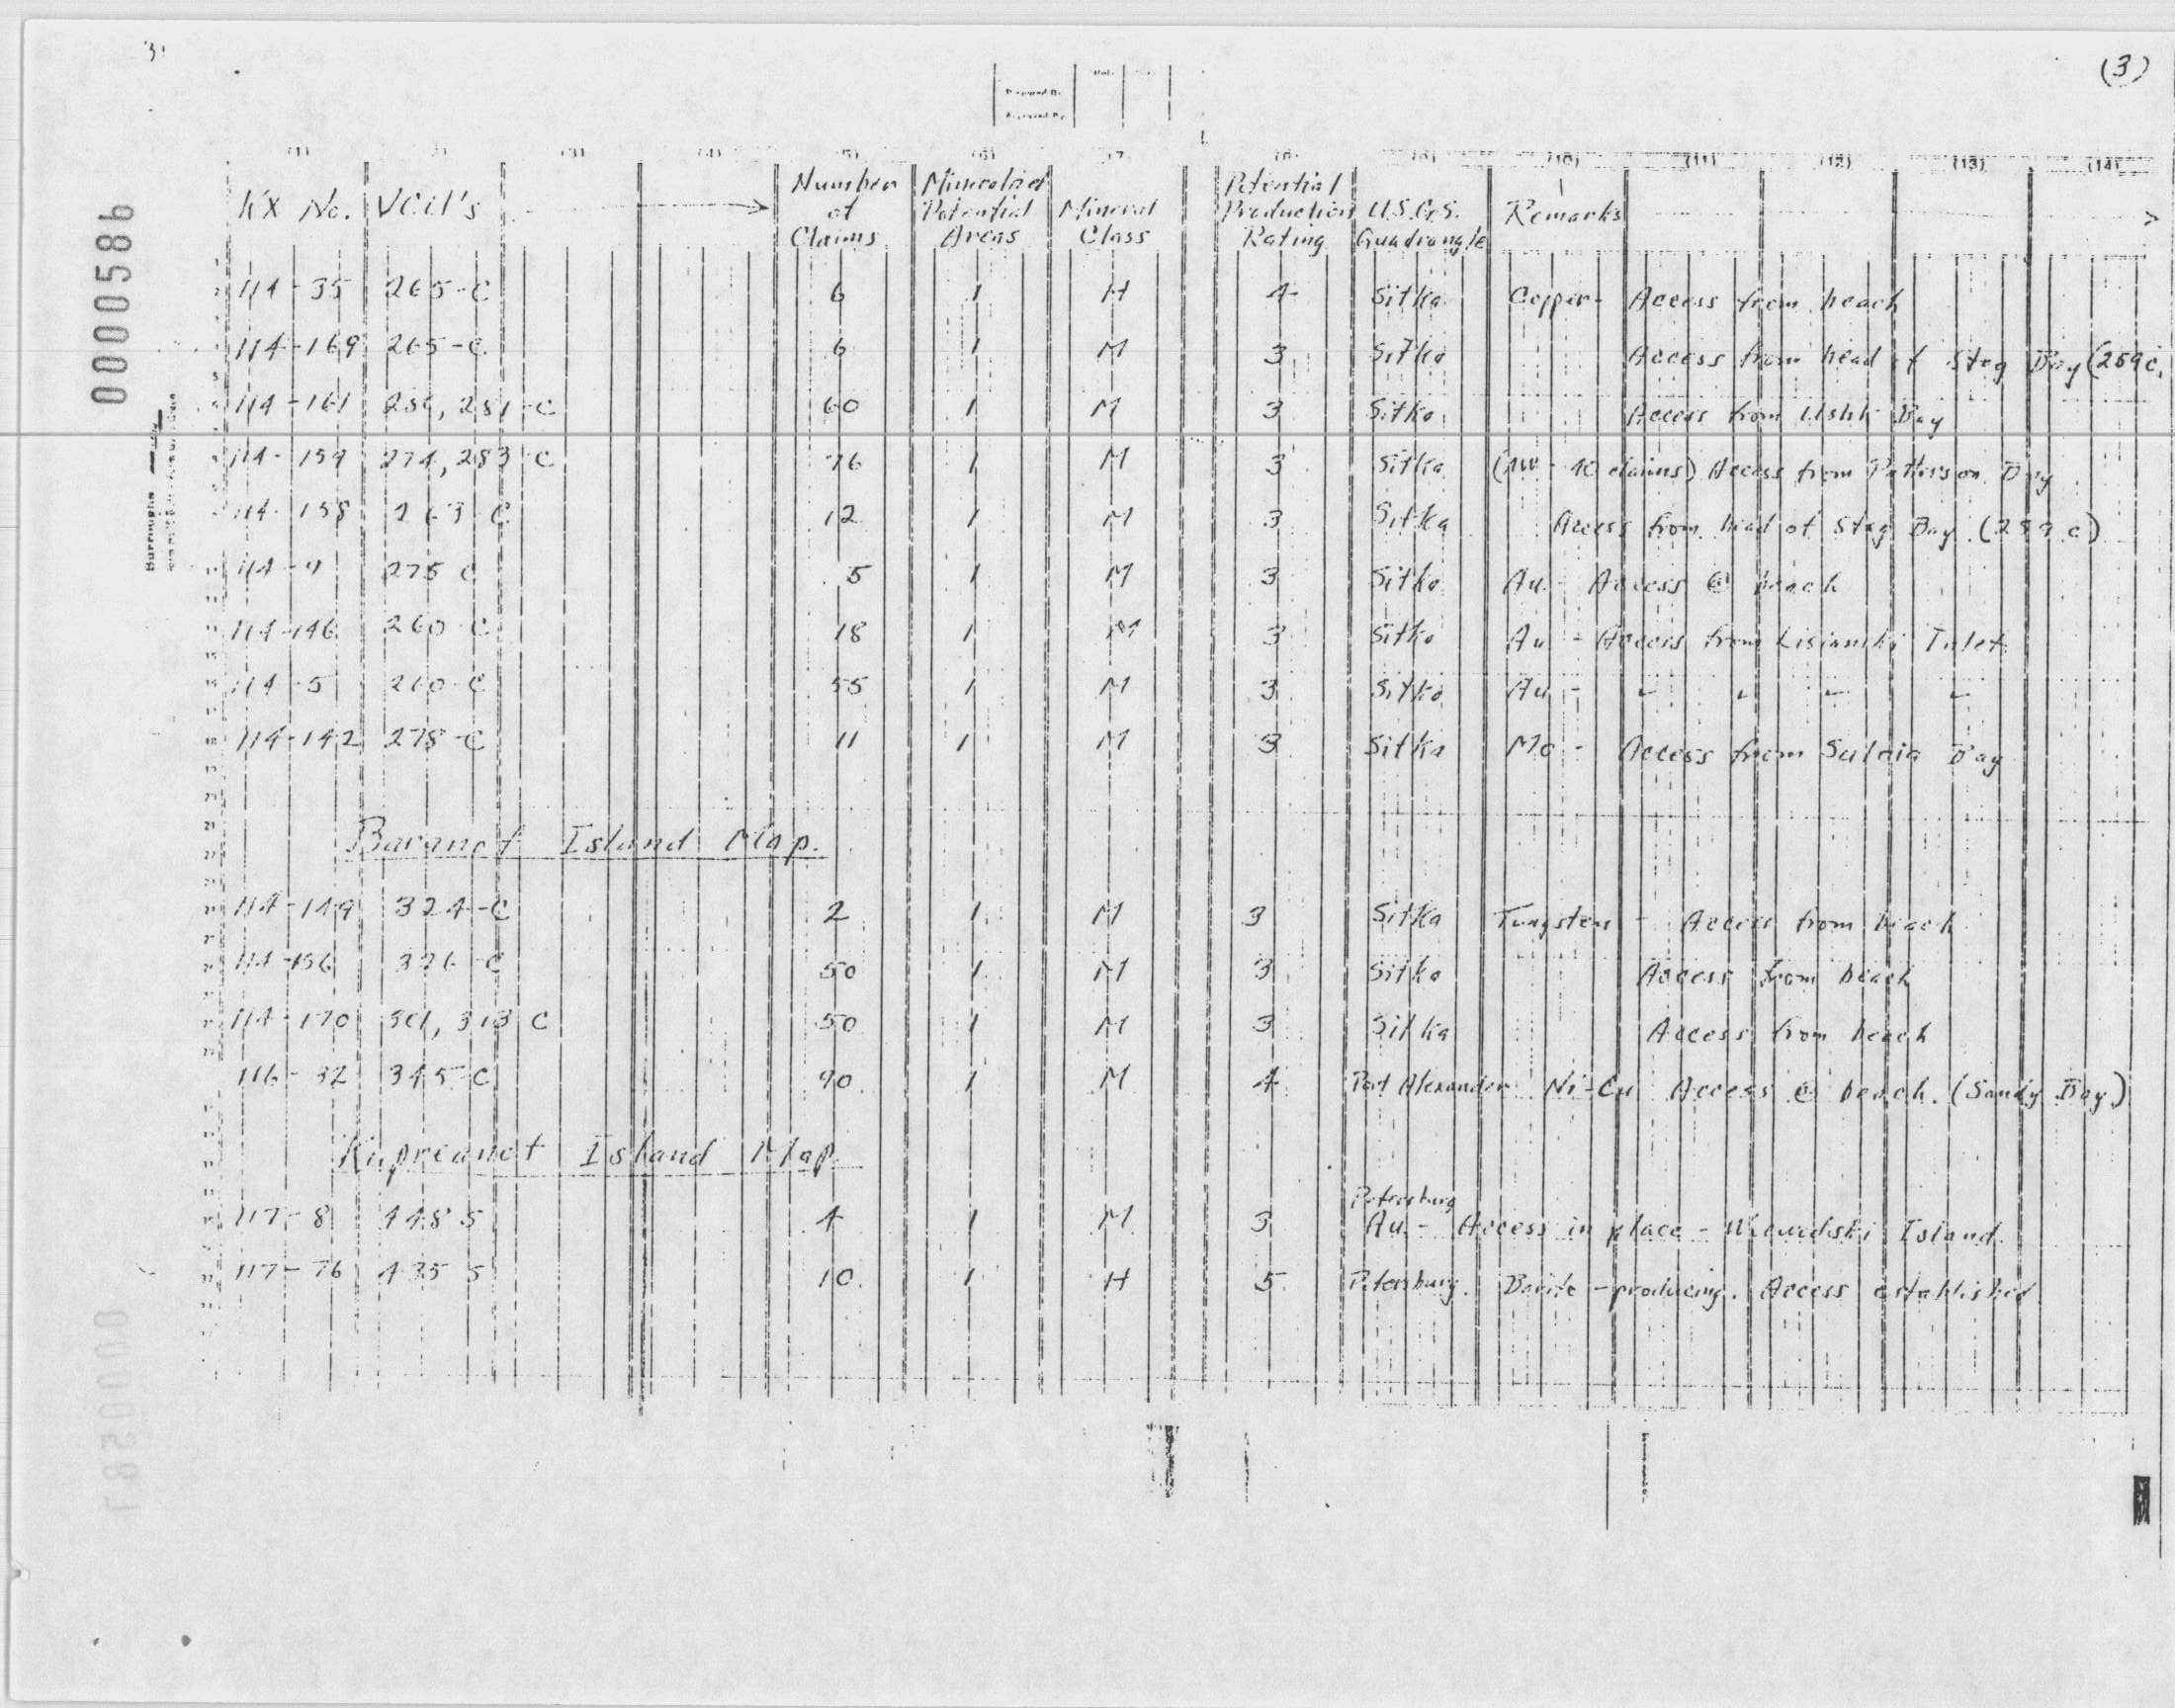 (3)
(1) (3) (4) (5) (6) (8) (9) (10) (11) (12) (13) (14)
Number Mineralized Potential
KX No. VCU's of Potential Mineral Production U.S.G.S. Remarks
Claims Areas Class Rating Quadrangle
114-35 265-C 6 1 H 4 Sitka Copper- Access from beach
114-169 265-C 6 1 M 3 Sitka Access from head of Stag Bay (259c,
114-161 281-C 60 1 M 3 Sitka Access from Ushk Bay
114-159 274, 283-C 76 1 M 3 Sitka (10 claims) Access from Patterson Bay
114-158 263-C 12 1 M 3 Sitka Access from head of Stag Bay. (259 c)
114-9 275 C 5 1 M 3 Sitka Au - Access @ beach
114-146 260-C 18 1 M 3 Sitka Au - Access from Lisianski Inlet
114-5 260-C 55 1 M 3 Sitka Au - " " " "
114-142 278-C 11 1 M 3 Sitka Mo - Access from Suloia Bay
Baranof Island Map.
114-149 324-C 2 1 M 3 Sitka Tungsten - Access from beach
114-156 326-C 50 1 M 3 Sitka Access from beach
114-170 313 C 50 1 M 3 Sitka Access from beach
116-32 345-C 90 1 M 4 Port Alexander Ni-Cu Access @ beach. (Sandy Bay)
Kupreanof Island Map
Petersburg
117-8 448 S 4 1 M 3 Au - Access in place - Woewodski Island.
117-76 435 S 10 1 H 5 Petersburg. Barite - producing. Access established
000058b
Burroughs